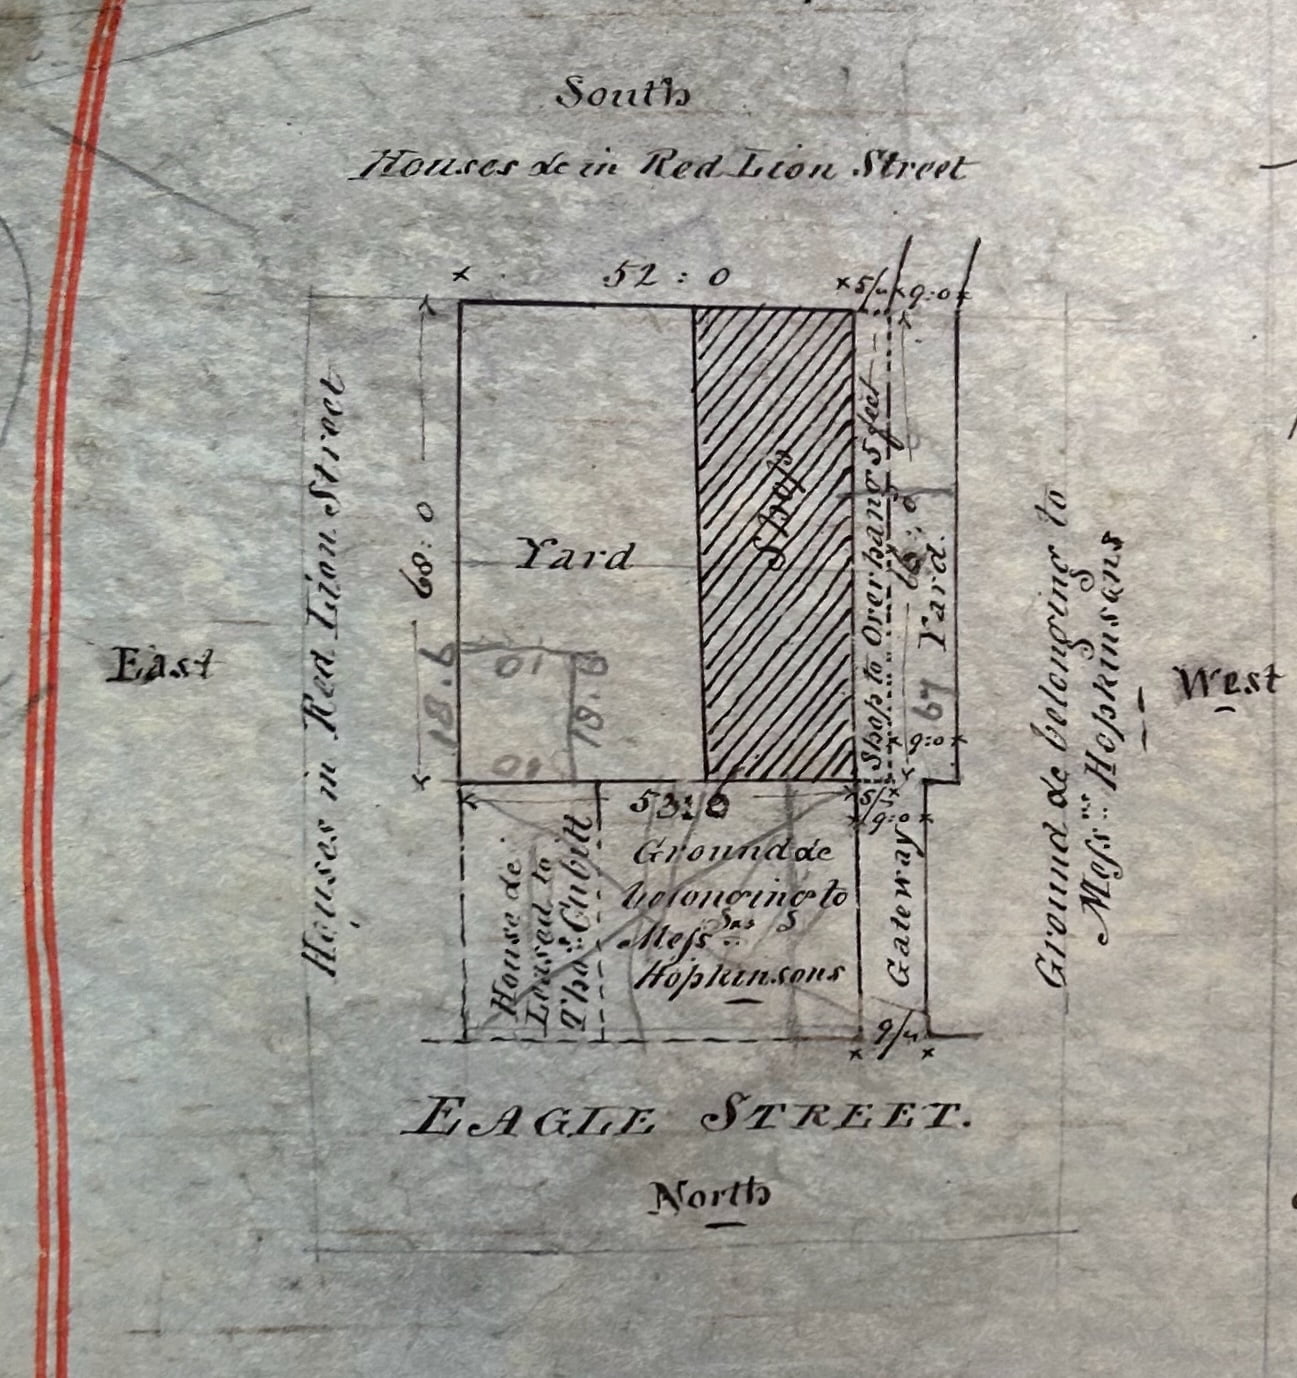 South
Houses &c in Red Lion Street
52 : 0
5/"
9:0
Houses in Red Lion Street
68 : 0
Yard
Shop
Shop to Overhang 5 feet
Yard.
67
9:0
Ground &c belonging to
Messrs Hopkinsons
East
West
18.6
10
18.0
10
53:0
5/"
9:0
House &c
Leased to
Thos Cubitt
Ground &c
belonging to
Messrs
Hopkinsons
Gateway
9/"
EAGLE STREET.
North